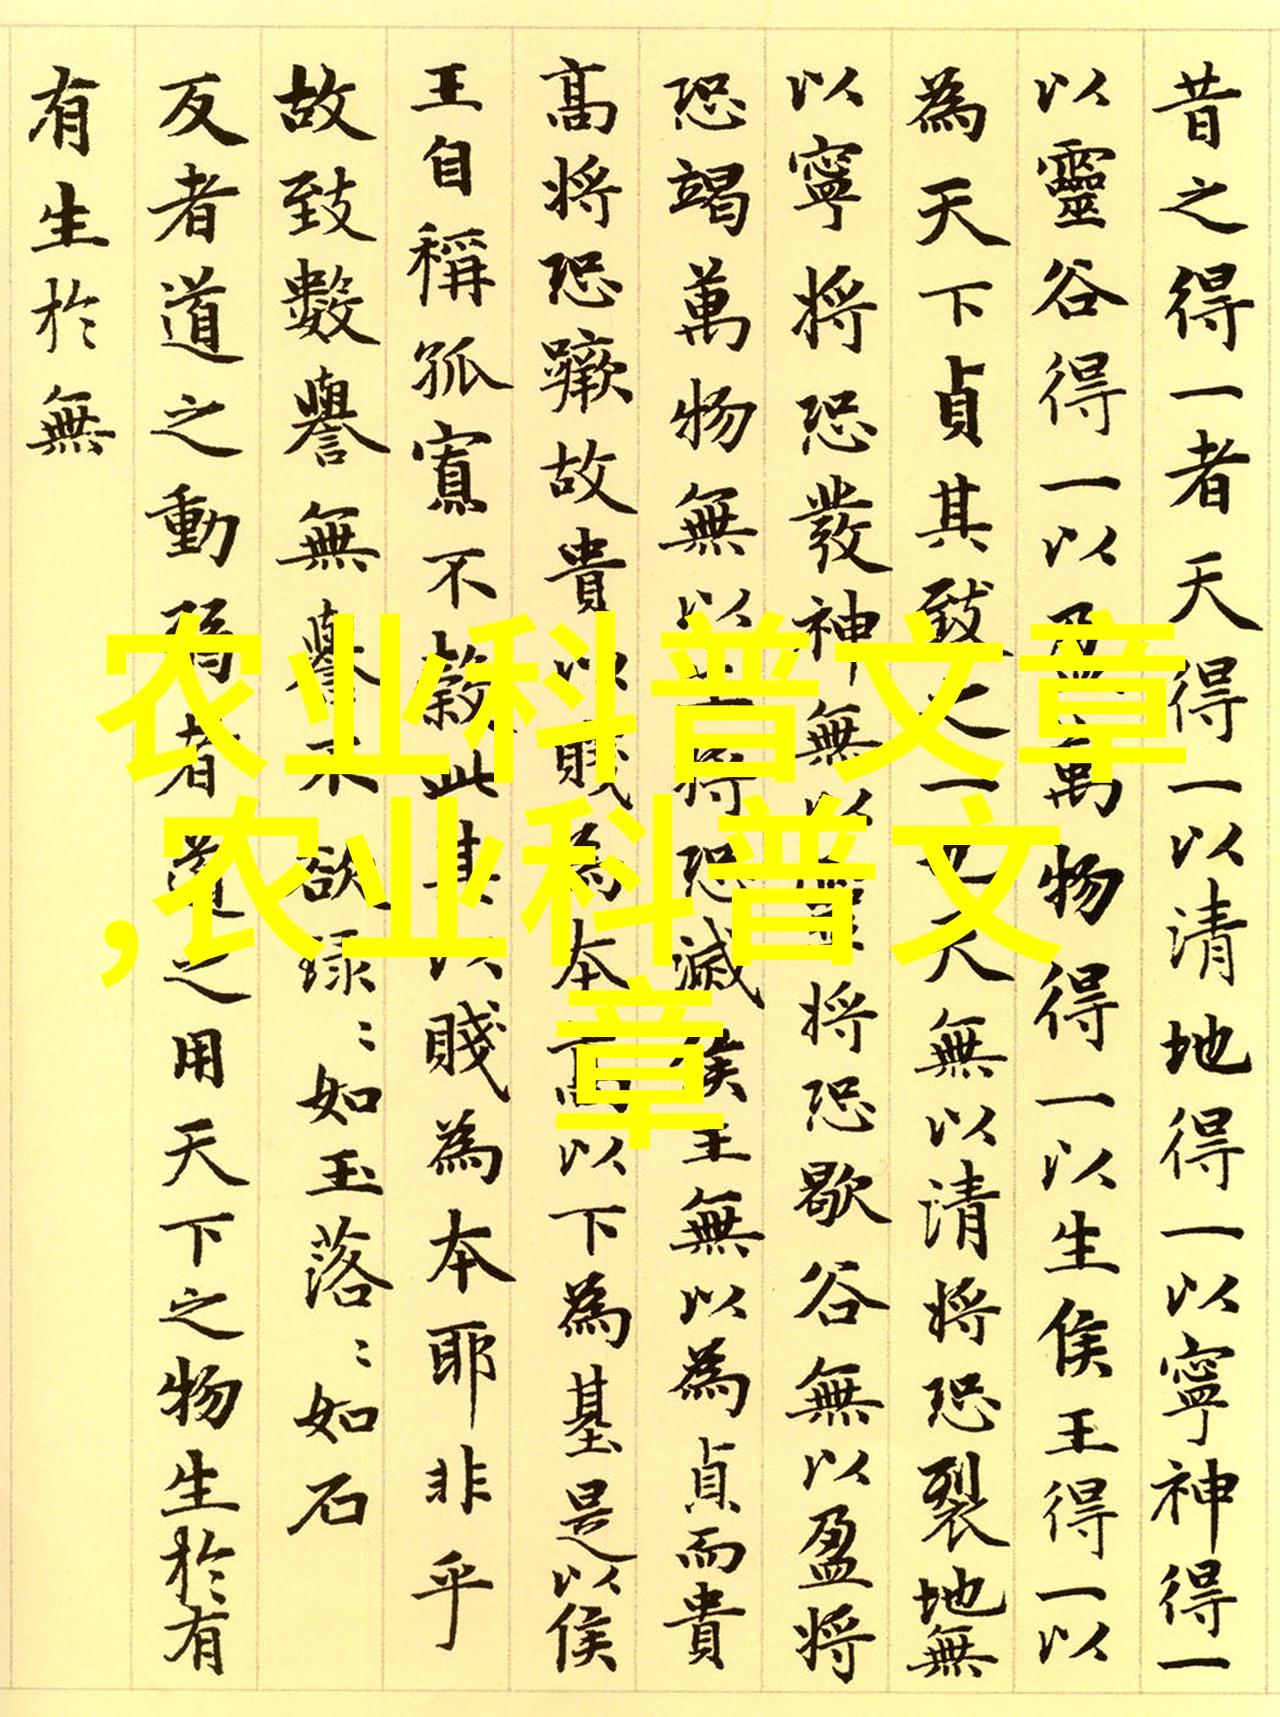 昔之得一者天得一以清地得一以寧神得一
以靈谷得一以盈萬物得一以生侯王得一以
為天下貞其致之一也天無以清將恐裂地無
以寧將恐發神無以靈將恐歇谷無以盈將
恐竭萬物無以生將恐滅侯王無以為貞而貴
高將恐蹶故貴以賤為本高以下為基是以侯
王自稱孤寡不穀此其以賤為本耶非乎
故致數譽無譽不欲琭〻如玉落〻如石
反者道之動弱者道之用天下之物生於有
有生於無
农业科普文章
,农业科普文
章